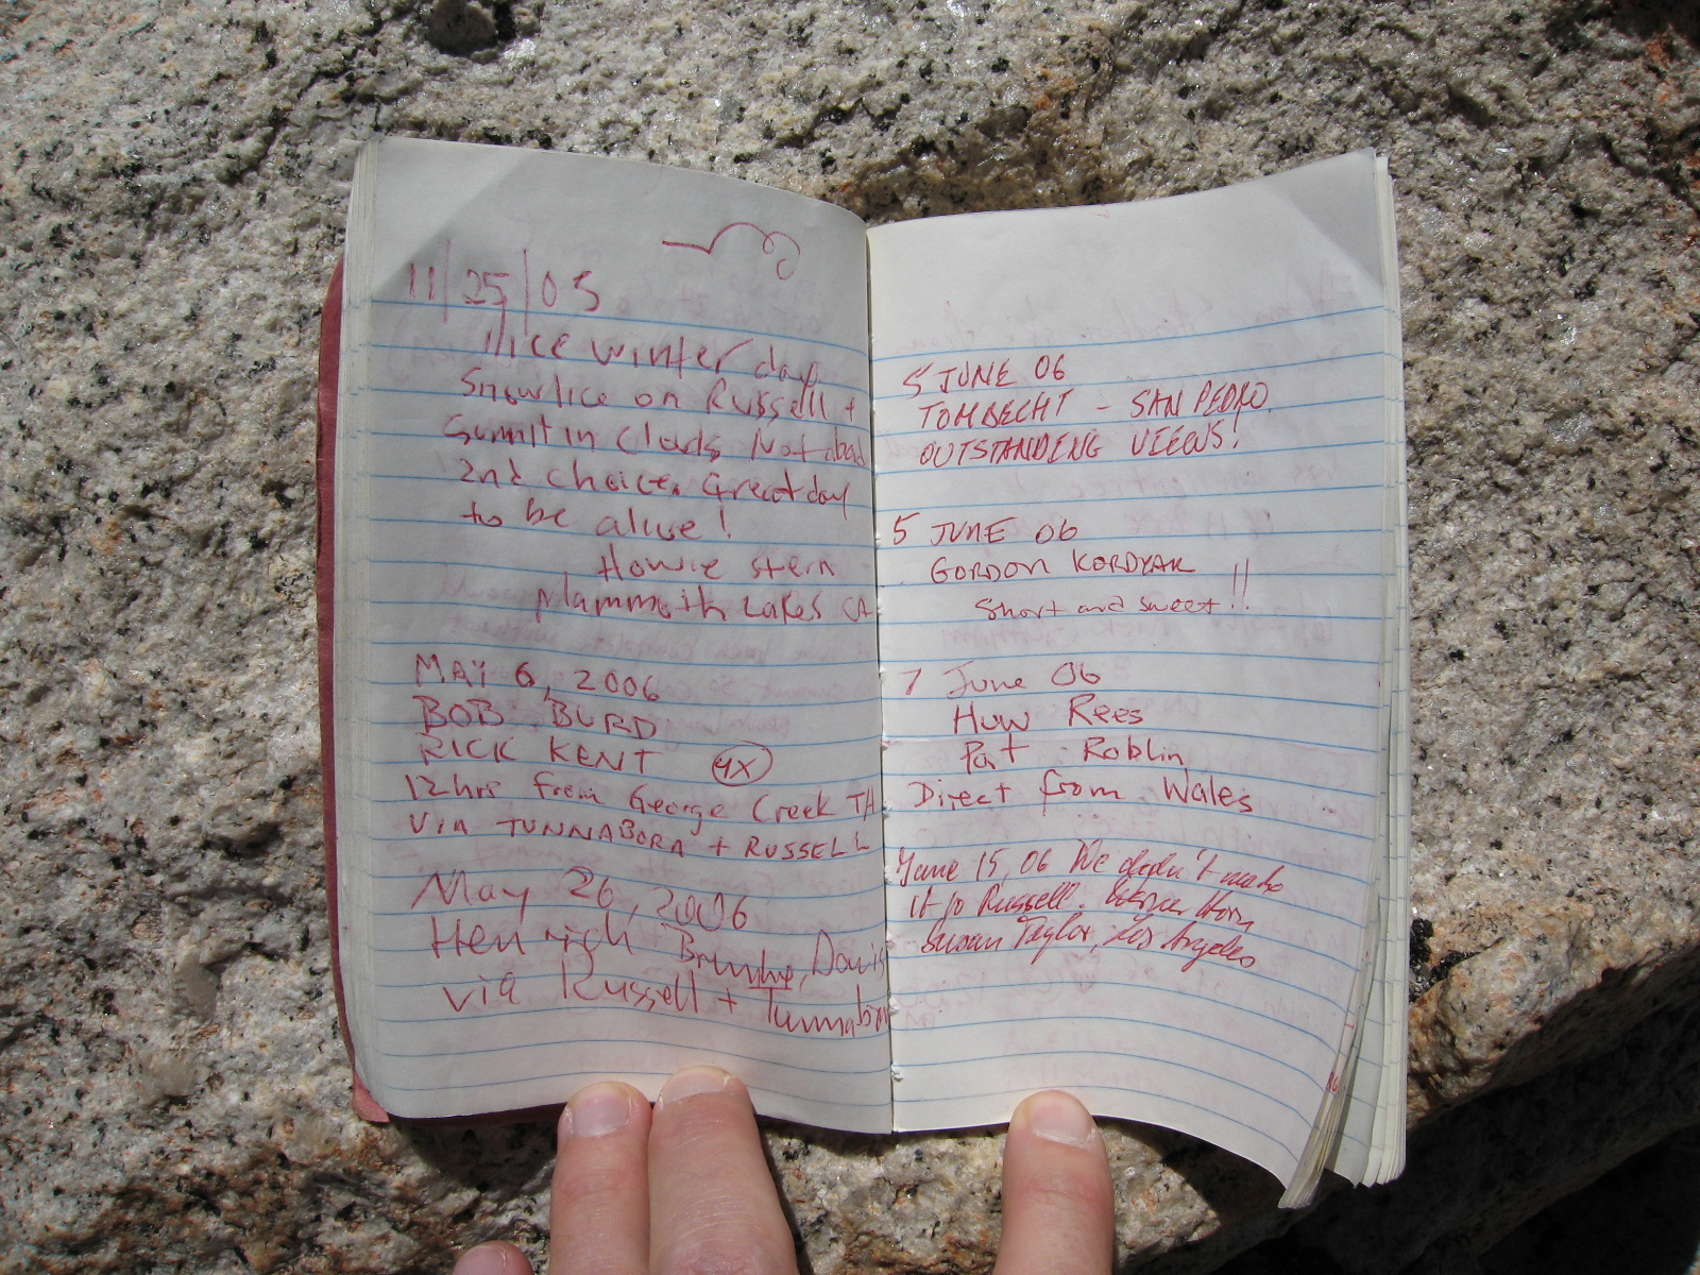 11/25/05
Nice winter day.
Snow/ice on Russell +
Summit in Clouds Not abad
2nd choice. Great day
to be alive!
Howie Stern
Mammoth Lakes CA
MAY 6, 2006
BOB BURD
RICK KENT 4X
12 hrs from George Creek TH
VIA TUNNABORA + RUSSELL
May 26, 2006
Henrich Davis
via Russell + Tunnabora
5 JUNE 06
TOM BECHT - SAN PEDRO
OUTSTANDING VIEWS!
5 JUNE 06
GORDON KORDYAK
Short and sweet!!
7 June 06
Huw Rees
Pat Roblin
Direct from Wales
June 15, 06 We didn't make
it to Russell. Horn
Susan Taylor, Los Angeles